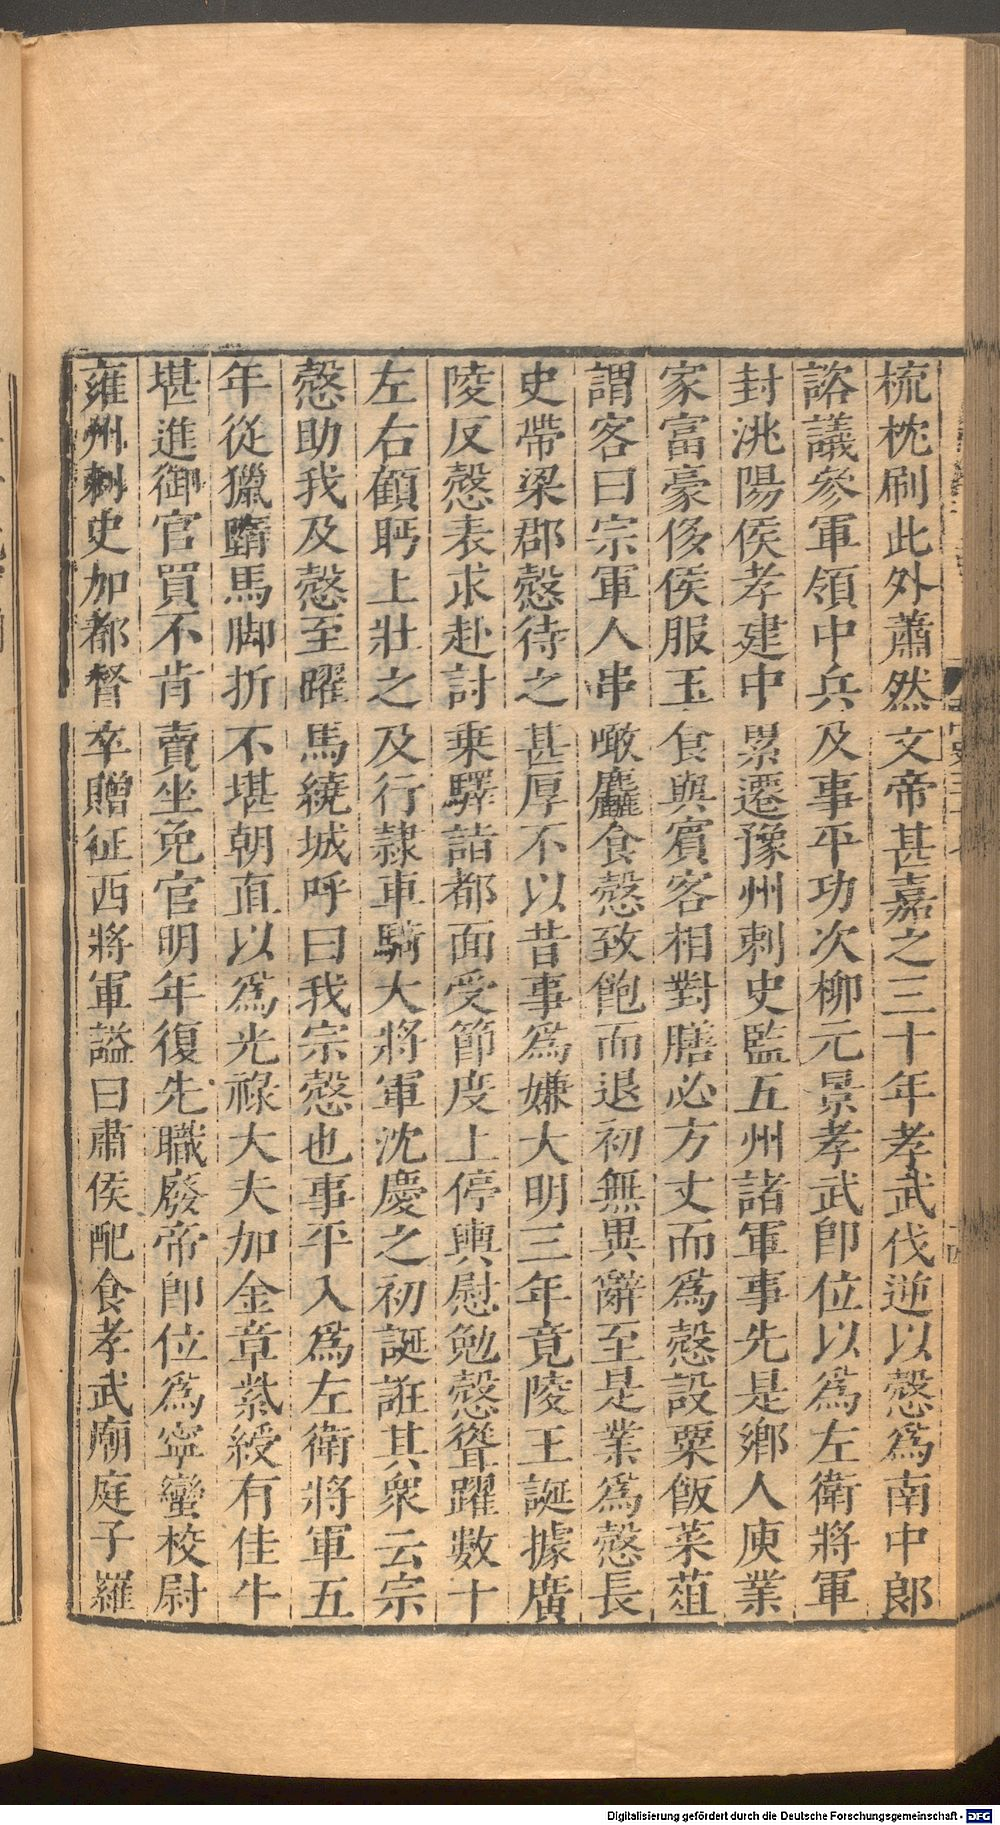 梳枕刷此外蕭然文帝甚嘉之三十年孝武伐逆以慤爲南中郎
諮議參軍領中兵及事平功次柳元景孝武卽位以爲左衛將軍
封洮陽侯孝建中累遷豫州刺史監五州諸軍事先是鄉人庾業
家富豪侈侯服玉食與賓客相對膳必方丈而爲慤設粟飯菜葅
謂客曰宗軍人串噉麤食慤致飽而退初無異辭至是業爲慤長
史帶梁郡慤待之甚厚不以昔事爲嫌大明三年竟陵王誕據廣
陵反慤表求赴討乗驛詣都面受節度上停輿慰勉慤聳躍數十
左右顧眄上壯之及行隸車騎大將軍沈慶之初誕誑其衆云宗
慤助我及慤至曜馬繞城呼曰我宗慤也事平入爲左衛將軍五
年從獵墮馬脚折不堪朝直以爲光祿大夫加金章紫綬有佳牛
堪進御官買不肯賣坐免官明年復先職廢帝卽位爲寧蠻校尉
雍州刺史加都督卒贈征西將軍謚曰肅侯配食孝武廟庭子羅
Digitalisierung gefördert durch die Deutsche Forschungsgemeinschaft - DFG